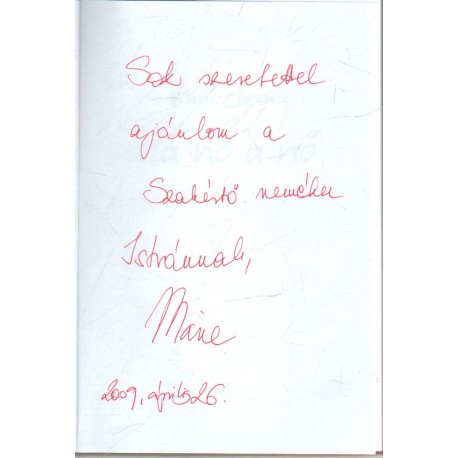 Sok szeretettel
ajánlom a
Szakértő
Istvánnak,
2009, április 26.